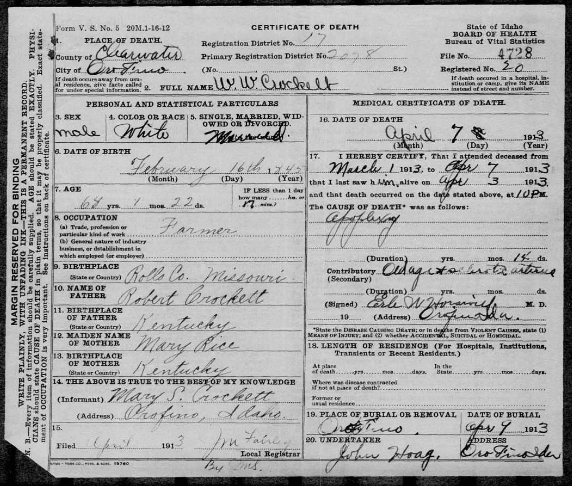 Form V. S. No. 5 20M.1-16-12
CERTIFICATE OF DEATH
State of Idaho
BOARD OF HEALTH
Bureau of Vital Statistics
1. PLACE OF DEATH
Registration District No. 17
County of Clearwater
Primary Registration District No. 2098
File No. 4728
City of Orofino
(No. St.)
Registered No. 20
If death occurs away from usual residence, give facts called for under special information.
If death occurred in a hospital, institution or camp, give its NAME instead of street and number.
2. FULL NAME W. W. Crockett
PERSONAL AND STATISTICAL PARTICULARS
3. SEX
male
4. COLOR OR RACE
White
5. SINGLE, MARRIED, WIDOWED OR DIVORCED.
Married
6. DATE OF BIRTH
February 16th
(Month) (Day) (Year)
7. AGE
yrs. 1 mos. 22 ds.
IF LESS than 1 day
how many hrs. or
min.
8. OCCUPATION
(a) Trade, profession or particular kind of work
Farmer
(b) General nature of industry, business, or establishment in which employed (or employer)
9. BIRTHPLACE
(State or Country) Rolls Co. Missouri
10. NAME OF FATHER Robert Crockett
11. BIRTHPLACE OF FATHER
(State or Country) Kentucky
12. MAIDEN NAME OF MOTHER Mary Rice
13. BIRTHPLACE OF MOTHER
(State or Country) Kentucky
14. THE ABOVE IS TRUE TO THE BEST OF MY KNOWLEDGE
(Informant) Mary S. Crockett
(Address) Orofino, Idaho.
15.
Filed April 1913 Jm Fairley
Local Registrar
By
MEDICAL CERTIFICATE OF DEATH
16. DATE OF DEATH
April 7 1913
(Month) (Day) (Year)
17. I HEREBY CERTIFY, That I attended deceased from
March 1 1913 to Apr 7 1913
that I last saw him alive on Apr 3 1913
and that death occurred on the date stated above, at 10 P m
The CAUSE OF DEATH* was as follows:
apoplexy
(Duration) yrs. mos. ds.
Contributory Old age
(Secondary)
(Duration) yrs. mos. ds.
(Signed) M. D.
19 (Address) Orofino Ida.
*State the DISEASE CAUSING DEATH; or in deaths from VIOLENT CAUSES, state (1) MEANS OF INJURY; and (2) whether ACCIDENTAL, SUICIDAL or HOMICIDAL.
18. LENGTH OF RESIDENCE (For Hospitals, Institutions, Transients or Recent Residents.)
At place of death yrs. mos. days. In the State yrs. mos. days.
Where was disease contracted
if not at place of death?
Former or
usual residence
19. PLACE OF BURIAL OR REMOVAL
Orofino
DATE OF BURIAL
Apr 9 1913
20. UNDERTAKER
John Hoag.
ADDRESS
Orofino Ida
MARGIN RESERVED FOR BINDING
WRITE PLAINLY, WITH UNFADING INK—THIS IS A PERMANENT RECORD.
N. B.—Every item of information should be carefully supplied. AGE should be stated EXACTLY. PHYSICIANS should state CAUSE OF DEATH in plain terms, so that it may be properly classified. Exact statement of OCCUPATION is very important. See instructions on back of certificate.